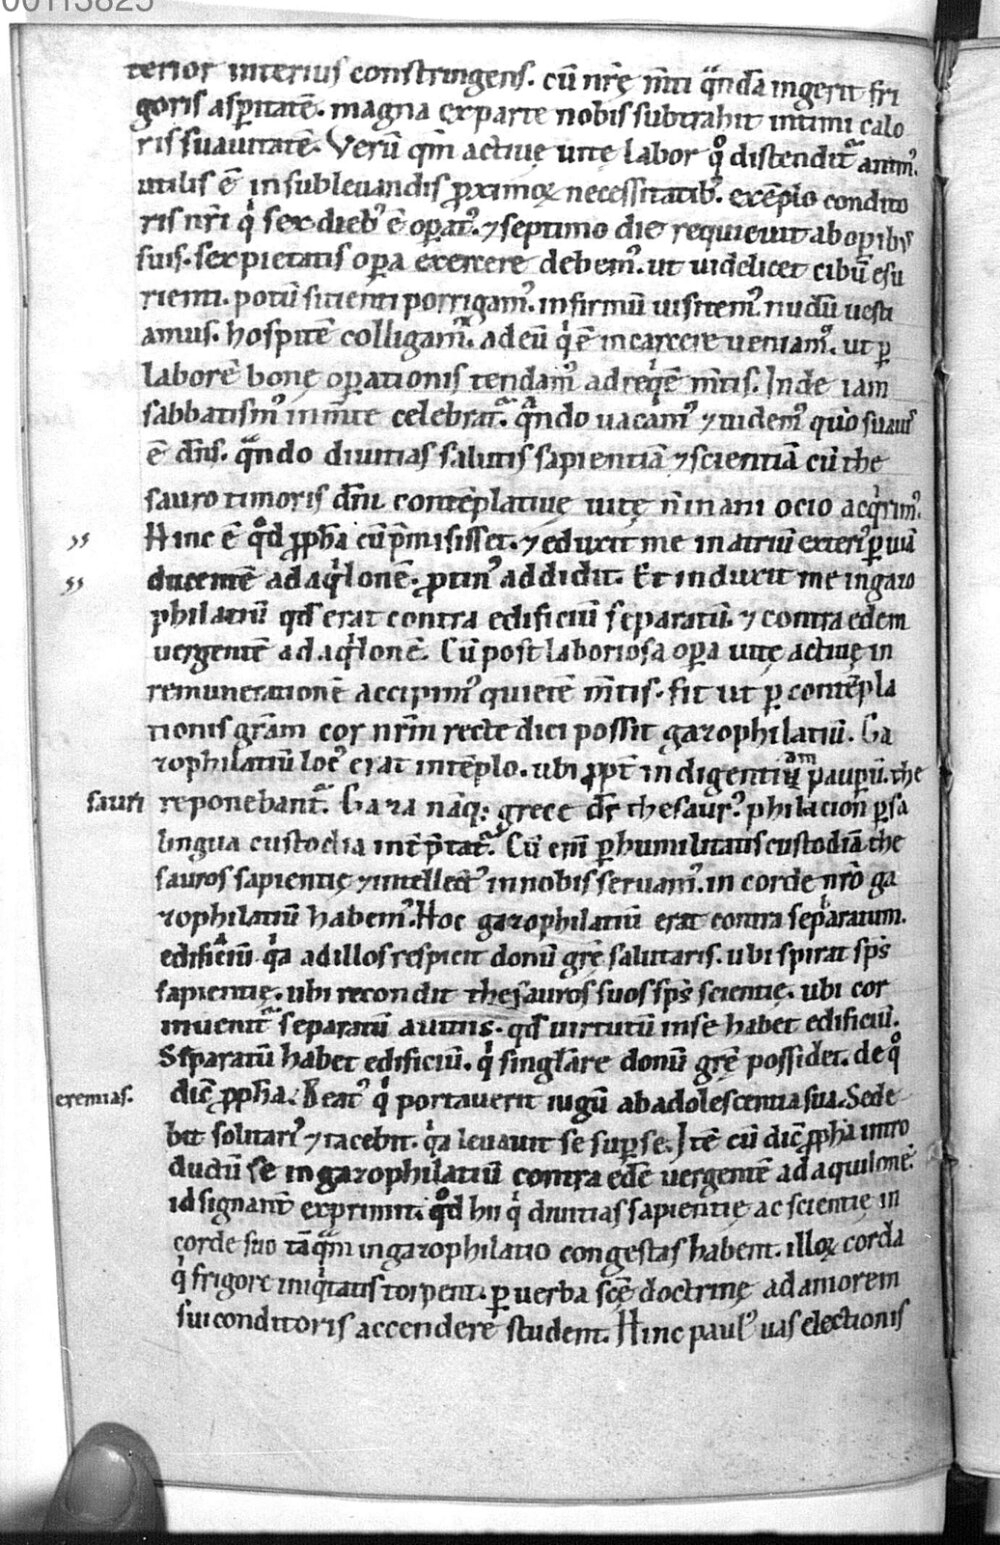 00113825
terior interius constringens. cū nr̄ę m̄ti q̄ndā ingerit fri
goris asp̱itatē. magna ex parte nobis subtrahit intimi calo
ris suauitatē. Verū qm̄ actiuę uitę labor q̊ distendit᷑ anim᷒.
utilis ē in subleuandis ꝓximoꝝ necessitatib᷒. exēplo condito
ris nr̄i qͥ sex dieb᷒ ē oꝑat᷒. ⁊ septimo die requieuit ab oꝑib᷒
suis. sex pietatis oꝑa exercere debem᷒. ut uidelicet cibū esu
rienti. potū sitienti porrigam᷒. infirmū uisitem᷒. nudū uesti
amus. hospitē colligam᷒. ad eū qͥ ē in carcere ueniam᷒. ut ꝑ
laborē bonę oꝑationis tendam᷒ ad reqͥē m̄tis. Inde iam
sabbatism᷒ in m̄te celebrat᷑. qᷓndo uacam᷒ ⁊ uidem᷒ quō suauis
ē dn̄s. qᷓndo diuitias salutis sapientiā ⁊ scientiā cū the
sauro timoris dn̄i contēplatiuę uitę n̄ inani ocio acqͥrim᷒.
Hinc ē qd̊ ꝓph̄a cū p̄misisset. ⁊ eduxit me in atriū exteri᷒ ꝑ uiā
ducentē ad aqͥlonē. ꝓtin᷒ addidit. Et induxit me in gazo
philatiū qd̄ erat contra edificiū separatū. ⁊ contra edem
uergentē ad aqͥlonē. Cū post laboriosa oꝑa uitę actiuę in
remunerationē accipim᷒ quietē m̄tis. fit ut ꝑ contēpla
tionis gr̄am cor nr̄m recte dici possit gazophilatiū. Ga
zophilatiū loc᷒ erat in tēplo. ubi ꝓpt̄ indigentiam pauperū. the
sauri reponebant᷑. Gaza nāq; grece dr̄ thesaur᷒. philacion ꝑsa
lingua custodia int̄p̄tat᷑. Cū eni ꝑ humilitatis custodiā the
sauros sapientię ⁊ intellect᷒ in nobis seruam᷒. in corde nr̄o ga
zophilatiū habem᷒. Hoc gazophilatiū erat contra seꝑatum.
edificiū qͣ ad illos respicit donū gr̄ę salutaris. ubi spirat sp̄s
sapientię. ubi recondit thesauros suos sp̄s scientię. ubi cor
inuenit᷑ separatū a uitiis. qd̄ uirtutū in se habet edificiū.
Separatū habet edificiū. qͥ singlare donū gr̄ę possidet. de q̊
eremias. dic̄ ꝓph̄a. Beat᷒ qͥ portauerit iugū ab adolescentia sua. Sede
bit solitari᷒ ⁊ tacebit. qͣ leuauit se suꝑ se. Itē cū dic̄ ꝓph̄a intro
ductū se in gazophilatiū contra edē uergentē ad aquilonē.
id signant̄ exprimit. qd̊ hii qͥ diuitias sapientię ac scientię in
corde suo tāqͣm in gazophilatio congestas habent. illoꝝ corda
qͥ frigore iniqͥtatis torpent. ꝑ uerba sc̄ę doctrinę ad amorem
sui conditoris accendere student. Hinc paul᷒ uas electionis